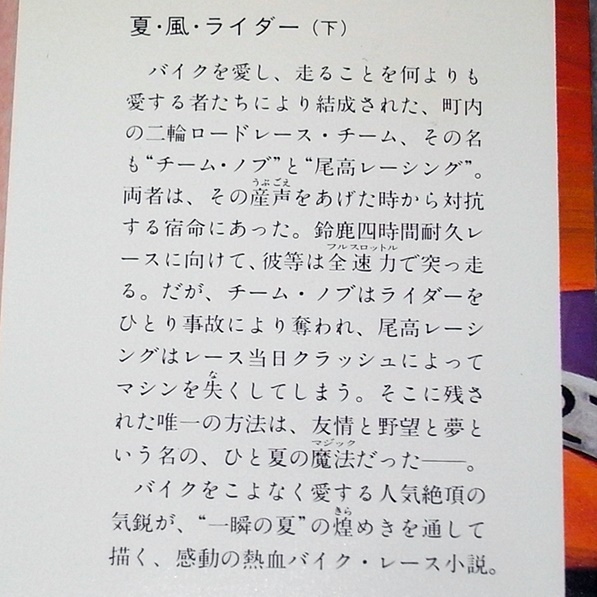 夏・風・ライダー（下）
バイクを愛し、走ることを何よりも
愛する者たちにより結成された、町内
の二輪ロードレース・チーム、その名
も“チーム・ノブ”と“尾高レーシング”。
うぶごえ
両者は、その産声をあげた時から対抗
する宿命にあった。鈴鹿四時間耐久レ
フルスロットル
ースに向けて、彼等は全速力で突っ走
る。だが、チーム・ノブはライダーを
ひとり事故により奪われ、尾高レーシ
ングはレース当日クラッシュによって
な
マシンを失くしてしまう。そこに残さ
れた唯一の方法は、友情と野望と夢と
マジック
いう名の、ひと夏の魔法だった――。
バイクをこよなく愛する人気絶頂の
きら
気鋭が、“一瞬の夏”の煌めきを通して
描く、感動の熱血バイク・レース小説。